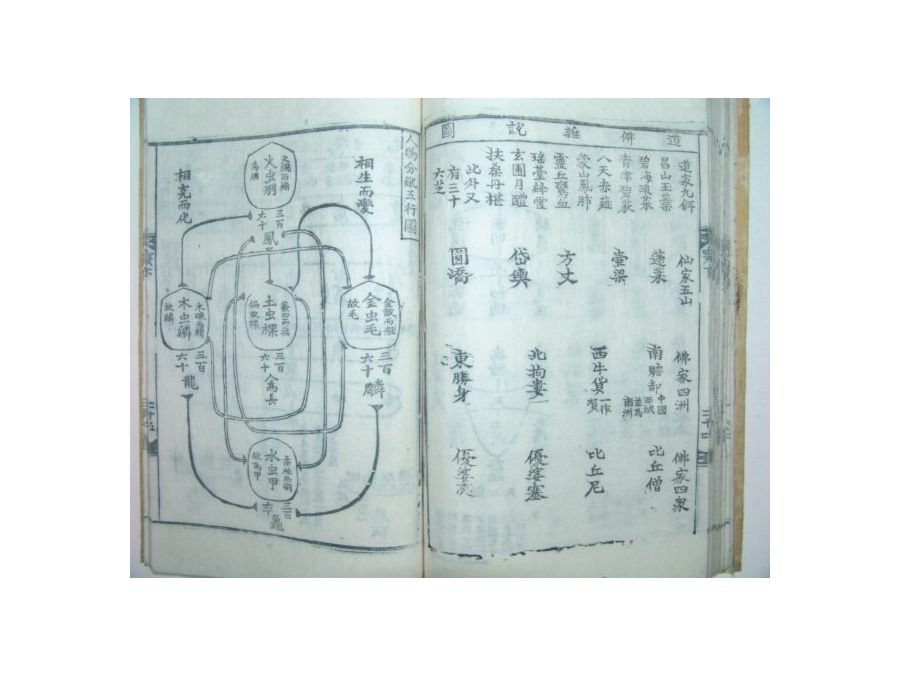 道佛雜說圖
道家九餌
昌山玉蘂
碧海浪菜
青津碧荻
八天赤薤
蒙山鳳肺
靈丘鸞血
瑤臺絳雪
玄圃月醴
扶桑丹椹
此外又
有三十
六芝
仙家五山
蓬萊
壺梁
方丈
岱輿
圓嶠
佛家四洲
南贍部
中國
西域
並為
南洲
西牛貨
一作
北拘婁
東勝身
佛家四衆
比丘僧
比丘尼
優婆塞
優婆夷
二十四
人物分配五行圖
相生而變
相克而化
火虫羽
三百
六十
鳳
金虫毛
故毛
三百
六十
麟
土虫裸
三百
六十
人為長
木虫鱗
故鱗
三百
六十
龍
水虫甲
故為甲
三百
六十
龜